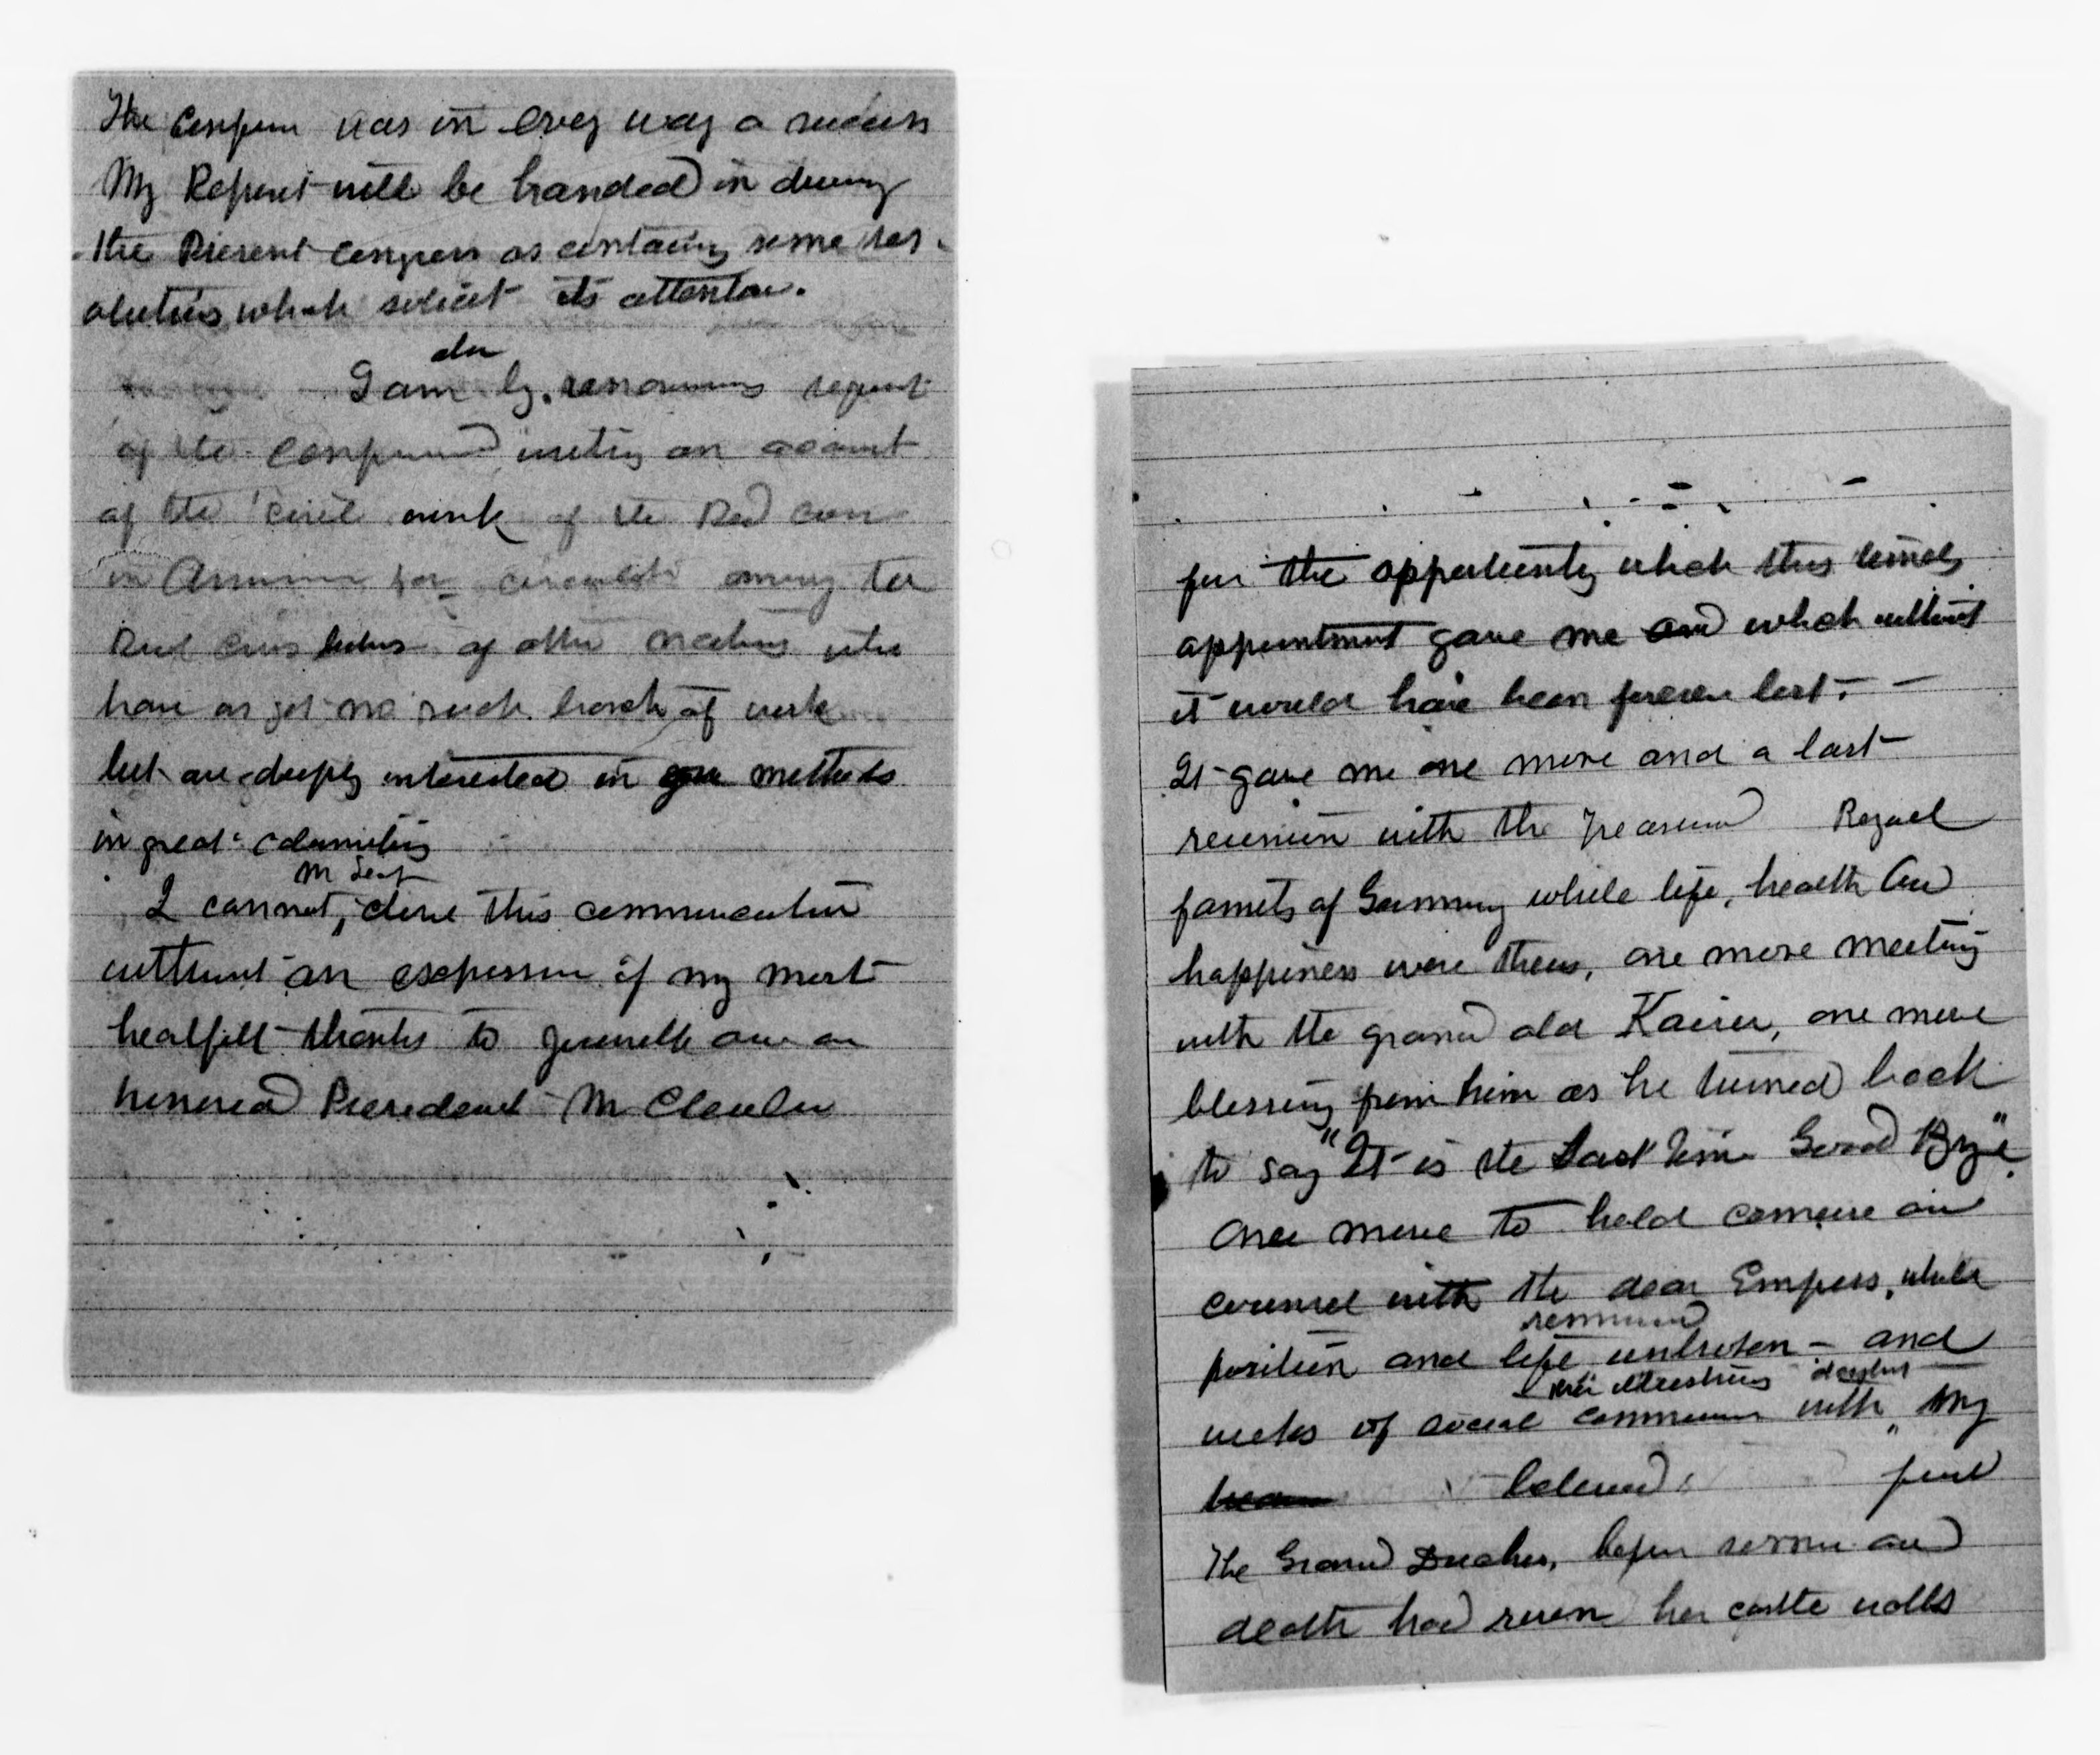 The Conference was in every way a success
My Report will be handed in during
the Present Congress as containing some res-
olutions which solicit its attention.
also
I am by unanimous request
of the Conference writing an account
of the civil work of the Red Cross
in America for circulation among the
Red Cross of other nations who
have as yet no such branch of work
but are deeply interested in our methods
in great calamities
I cannot, close this communication
without an expression of my most
heartfelt thanks to yourself and our
honored President Mr Cleveland
for the opportunity which this timely
appointment gave me and which without
it would have been forever lost. —
It gave me one more and a last
reunion with the treasured Royal
family of Germany while life, health and
happiness were theirs, one more meeting
with the grand old Kaiser, one more
blessing from him as he turned back
to say "It is the last time Good Bye".
Once more to hold converse and
counsel with the dear Empress, while
remained
position and life unbroken — and
daughter
weeks of social communion with my
beloved friend
The Grand Duchess, before sorrow and
death had riven her castle walls